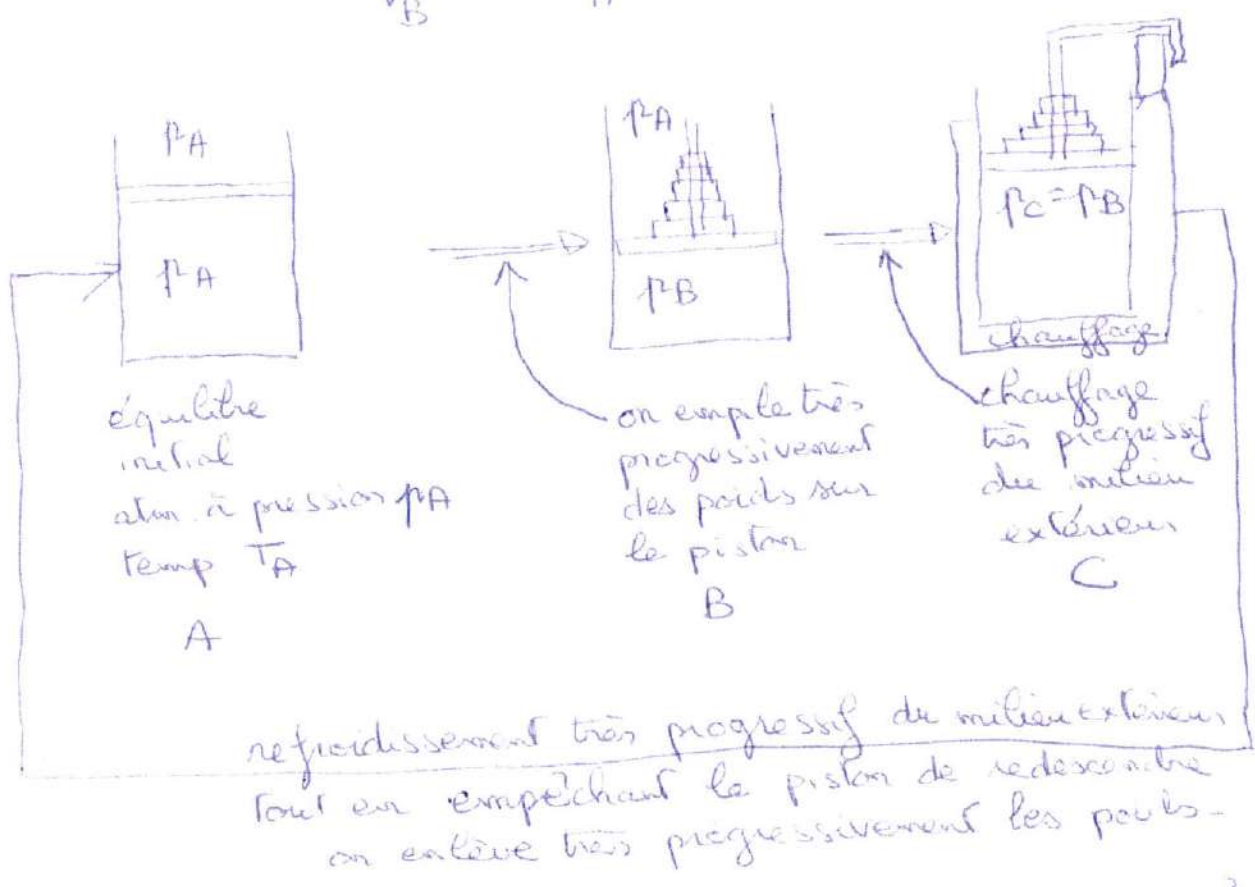 B
pA
pA
équilibre
initial
atm. à pression pA
temp TA
A
pA
pB
on empile très
progressivement
des poids sur
le piston
B
pC = pB
chauffage
chauffage
très progressif
du milieu
extérieur
C
refroidissement très progressif du milieu extérieur
tout en empêchant le piston de redescendre
on enlève très progressivement les poids-